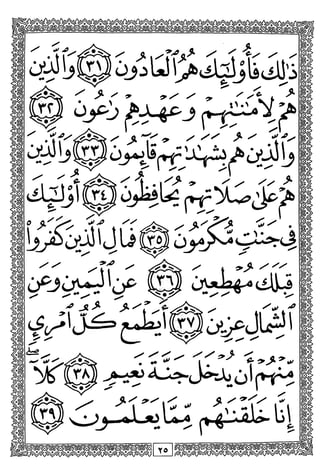 ذَٰلِكَ فَأُو۟لَٰٓئِكَ هُمُ ٱلْعَادُونَ ٣١ وَٱلَّذِينَ
هُمْ لِأَمَٰنَٰتِهِمْ وَعَهْدِهِمْ رَٰعُونَ ٣٢
وَٱلَّذِينَ هُم بِشَهَٰدَٰتِهِمْ قَآئِمُونَ ٣٣ وَٱلَّذِينَ
هُمْ عَلَىٰ صَلَاتِهِمْ يُحَافِظُونَ ٣٤ أُو۟لَٰٓئِكَ
فِى جَنَّٰتٍ مُّكْرَمُونَ ٣٥ فَمَالِ ٱلَّذِينَ كَفَرُوا۟
قِبَلَكَ مُهْطِعِينَ ٣٦ عَنِ ٱلْيَمِينِ وَعَنِ
ٱلشِّمَالِ عِزِينَ ٣٧ أَيَطْمَعُ كُلُّ ٱمْرِئٍ
مِّنْهُمْ أَن يُدْخَلَ جَنَّةَ نَعِيمٍ ٣٨ كَلَّآ ۖ
إِنَّا خَلَقْنَٰهُم مِّمَّا يَعْلَمُونَ ٣٩
٢٥